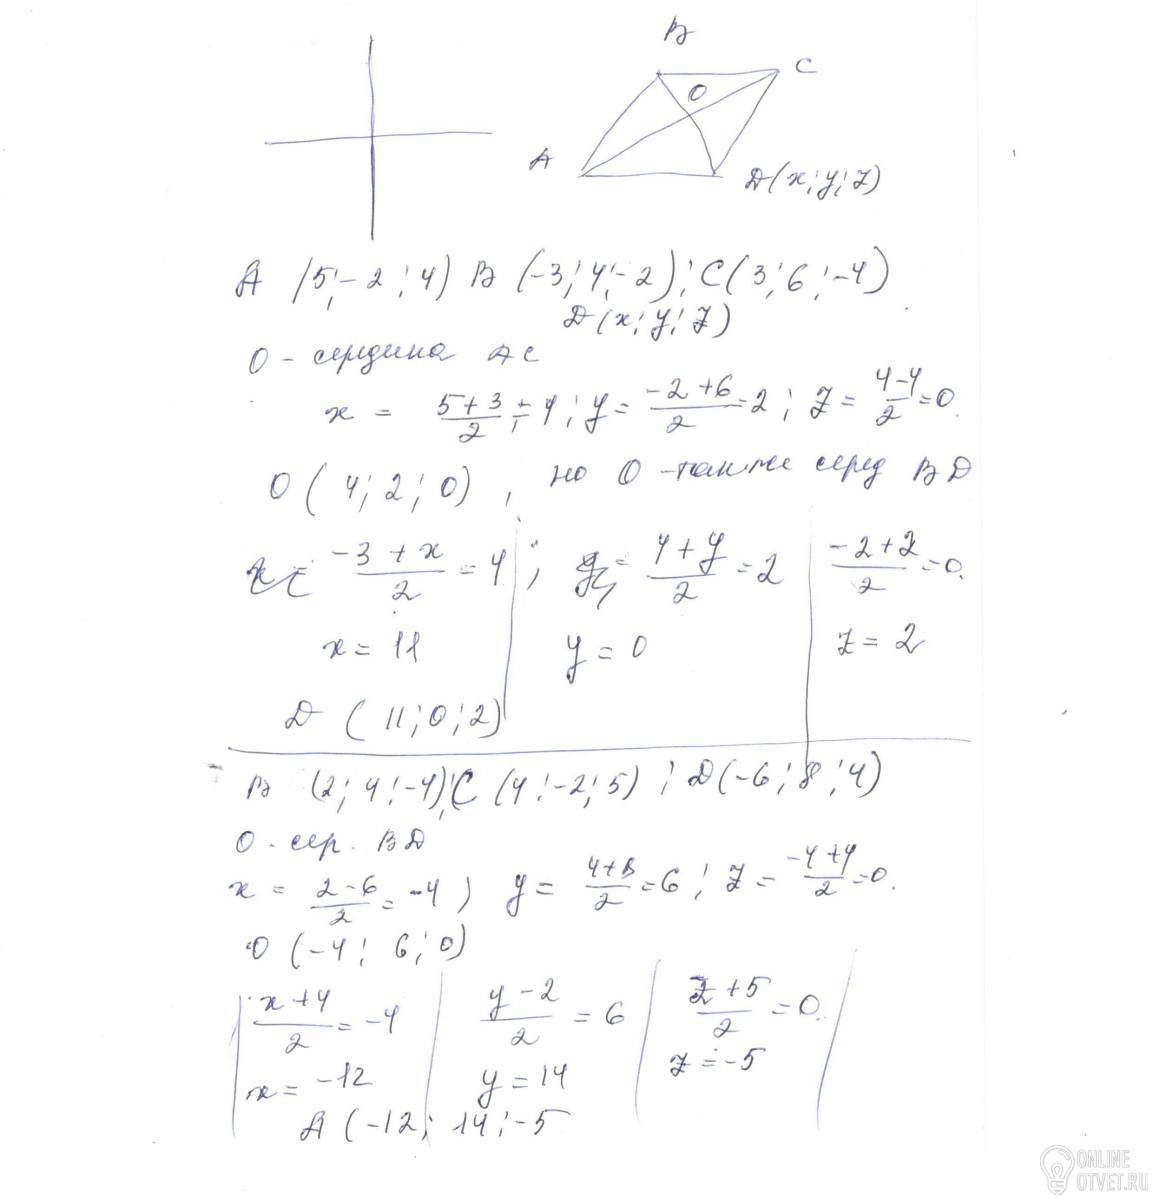 B
C
O
A
D(x; y; z)
A (5; -2; 4) B (-3; 4; -2); C(3; 6; -4)
D(x; y; z)
O - середина AC
x = (5+3)/2 = 4; y = (-2+6)/2 = 2; z = (4-4)/2 = 0.
O (4; 2; 0), но O - также серед BD
(-3+x)/2 = 4; (4+y)/2 = 2 (-2+z)/2 = 0.
x = 11 y = 0 z = 2
D (11; 0; 2)
B (2; 4; -4); C (4; -2; 5); D(-6; 8; 4)
O - сер. BD
x = (2-6)/2 = -4; y = (4+8)/2 = 6; z = (-4+4)/2 = 0.
O (-4; 6; 0)
(x+4)/2 = -4 (y-2)/2 = 6 (z+5)/2 = 0.
x = -12 y = 14 z = -5
A (-12; 14; -5
ONLINE
OTVET.RU